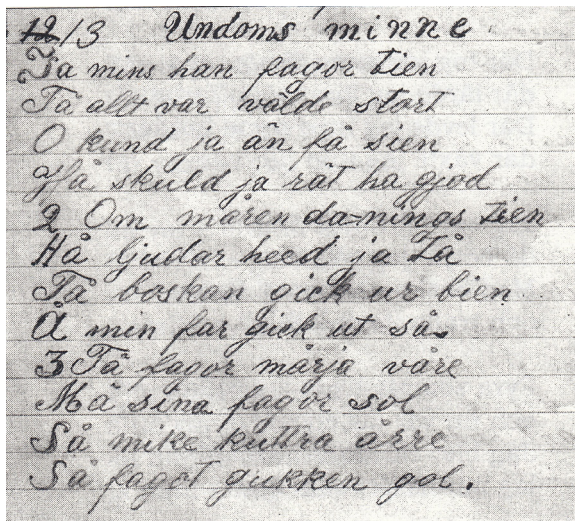 12/13 Undoms minne
Ja mins han fagor tien
Tå allt var välde stort
O kund ja än få sien
Hå skuld ja rät ha gjod
2 Om måren da=nings tien
Hå ljudar heed ja Lå
Tå boskan gick ur bien
Å min far gick ut så.
3 Tå fagor mårja våre
Må sina fagor sol
Så mike kuttra årre
Så fagot gukken gol.